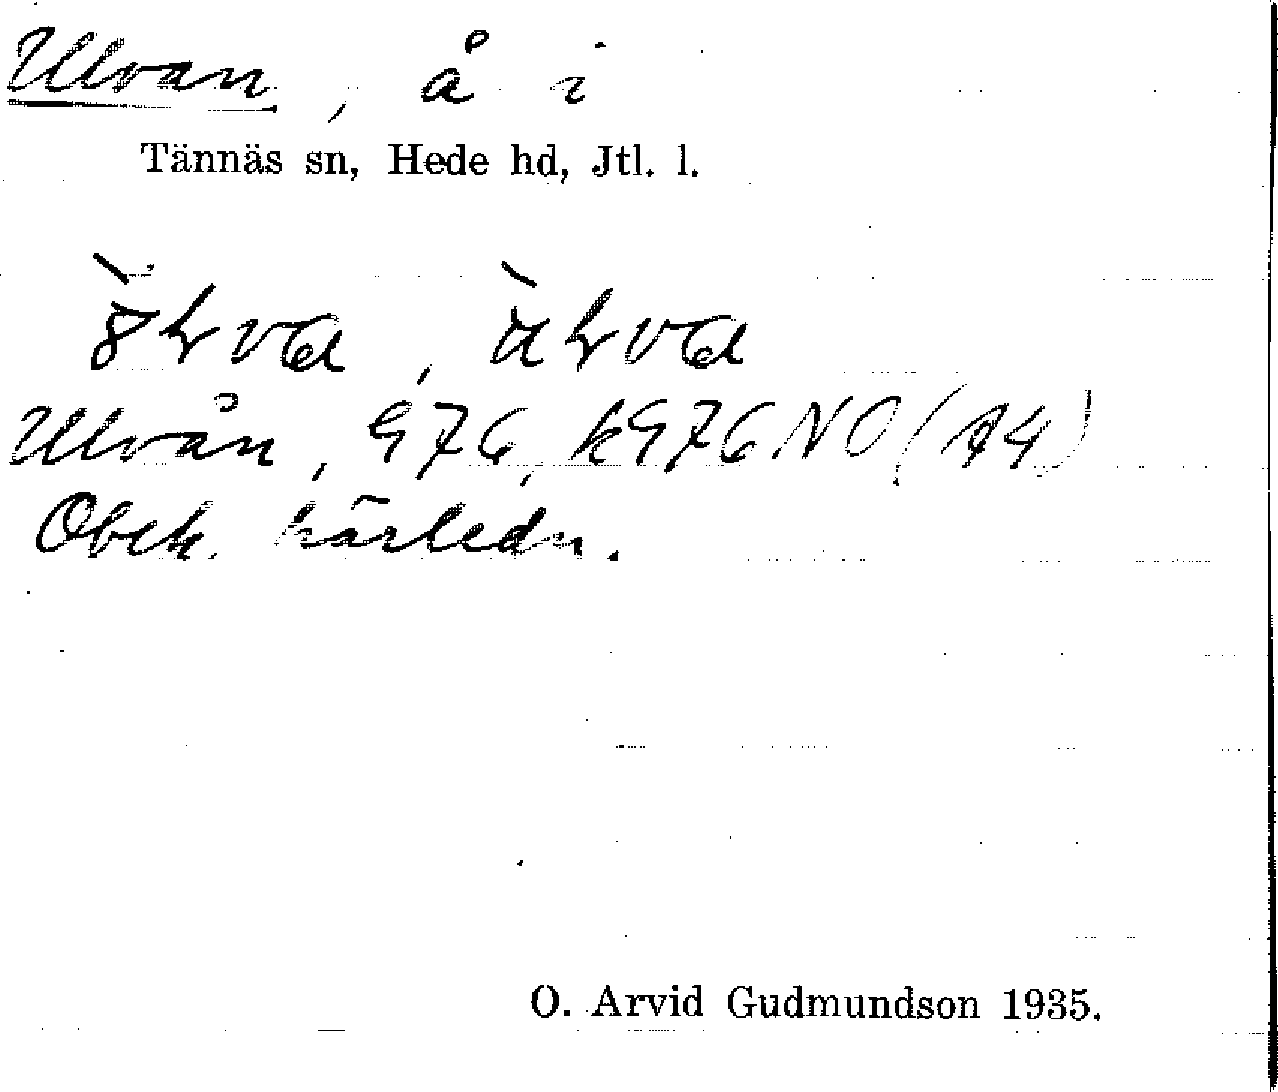 Ulvan, å i
Tännäs sn, Hede hd, Jtl. l.
Ulvån, G76, kG76NO (A4)
Obek. härledn.
O. Arvid Gudmundson 1935.